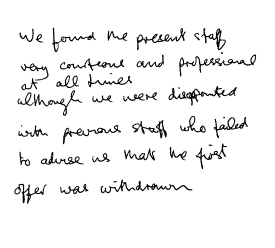 We found the present staff
very courteous and professional
at all times
although we were disappointed
with previous staff who failed
to advise us that the first
offer was withdrawn